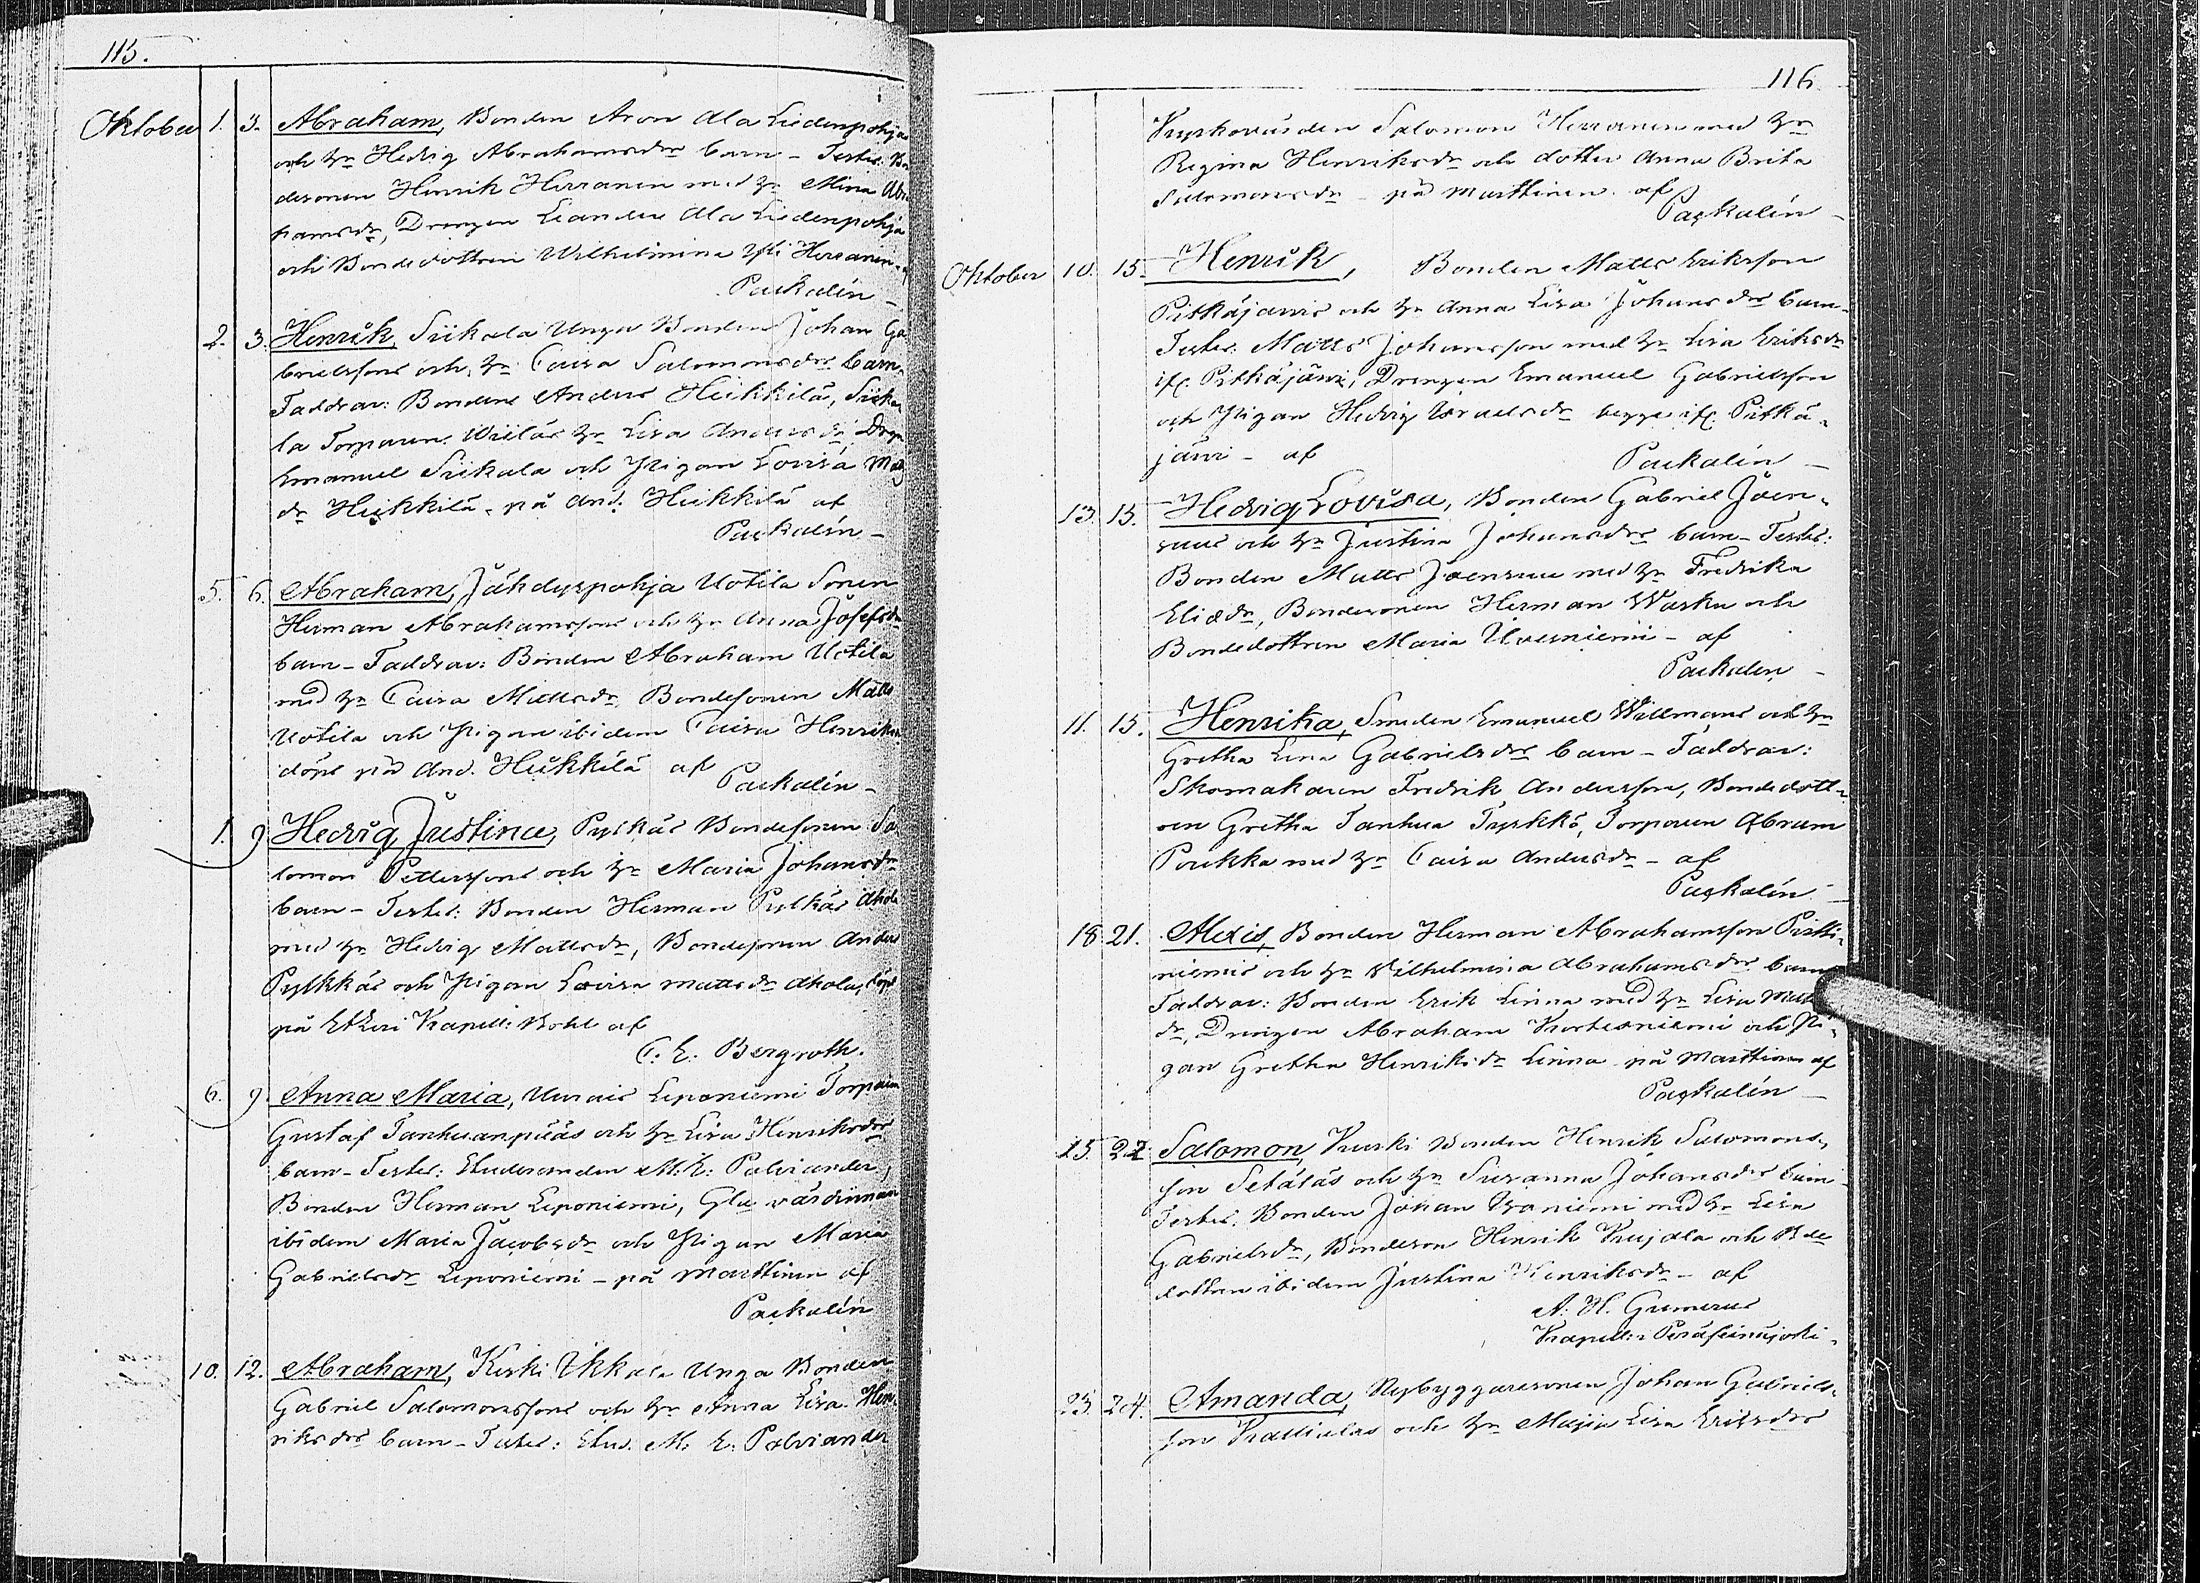 115.
Oktober 1. 3. Abraham, Bonden Aron Ala Liedenpohjas
och h:n Hedvig Abrahamsdrs barn - Testes: Bon
desonen Henrik Herranen med h:n Mina Abra
hamsdr, Drengen Leander Ala Liedenpohja
och Bondedottren Wilhelmina Yli Herranen, af
Packalén -
2. 3. Henrik, Siikala Unga Bonden Johan Ga
brielssons och h:n Caisa Salomonsdrs barn.
Faddrar: Bonden Anders Heikkilä, Siika
la Torparen Wiiläs h:n Lisa Andersdr, Dreng
Emanuel Siikala och Pigan Lovisa Matts
dr Heikkilä - på And: Heikkilä af
Packalén -
5. 6. Abraham, Jähdyspohja Uotila Sonen
Herman Abrahamssons och h:n Anna Josefsdrs
barn - Faddrar: Bonden Abraham Uotila
med h:n Caisa Mattsdr, Bondesonen Matts
Uotila och Pigan ibidem Caisa Henriksdr
döpt på And. Heikkilä af
Packalén -
1. 9. Hedvig Justina, Pylkäs Bondesonen Sa
lomon Petterssons och h:n Maria Johansdrs
barn - Testes: Bonden Herman Pylkäs Ahola
med h:n Hedvig Mattsdr, Bondesonen Anders
Pylkkäs och Pigan Lovisa Mattsdr Ahola, döpt
på Etseri Kapell: Bohl af
C. E. Bergroth.
6. 9. Anna Maria, Uurais Leponiemi Torparen
Gustaf Tanhuanpääs och h:n Lisa Henriksdrs
barn - Testes: Studeranden M: E: Palviander,
Bonden Herman Leponiemi, Gla värdinnan
ibidem Maria Jacobsdr och Pigan Maria
Gabrielsdr Leponiemi - på Marttinen af
Packalén
10. 12. Abraham, Keski Ikkala Unga Bonden
Gabriel Salomonssons och h:n Anna Lisa Hen
riksdrs barn - Testes: Stud. M. E. Palviander
116
Kyrkovärden Salomon Herranen med h:n
Regina Henriksdr och dotter Anna Brita
Salomonsdr - på Marttinen af
Packalén -
Oktober 10. 15. Henrik, Bonden Matts Eriksson
Pitkäjärvis och h:n Anna Lisa Johansdrs barn.
Testes: Matts Johansson med h:n Lisa Eriksdr
ifr. Pitkäjärvi, Drengen Emanuel Gabrielsson
och Pigan Hedvig Israelsdr begge ifr. Pitkä-
järvi - af Packalén -
13. 15. Hedvig Lovisa, Bonden Gabriel Joen-
suus och h:n Justina Johansdrs barn - Testes:
Bonden Matts Joensuu med h:n Fredrika
Eliædr, Bondesonen Herman Wasku och
Bondedottren Maria Uuesniemi - af
Packalen -
11. 15. Henrika, Smeden Emanuel Willmans och h:n
Gretha Lena Gabrielsdrs barn - Faddrar:
Skomakaren Fredrik Andersson, Bondedott-
ren Gretha Tanhua Tyrkkö, Torparen Abram
Poukka med h:n Caisa Andersdr - af
Packalén
18. 21. Alexis, Bonden Herman Abrahamsson Pirtti-
niemis och h:n Vilhelmina Abrahamsdrs barn
Faddrar: Bonden Erik Linna med h:n Lisa Matts
dr, Drengen Abraham Kortesniemi och Pi-
gan Gretha Henriksdr Linna - på Marttinen af
Packalén -
15. 22 Salomon, Kurki Bonden Henrik Salomons-
son Setäläs och h:n Susanna Johansdrs barn -
Testes. Bonden Johan Isoniemi med h:n Lisa
Gabrielsdr, Bondeson Henrik Kujala och Bde
dottren ibidem Justina Henriksdr - af
A. H. Gumerus
Kapell: i Peräseinäjoki -
23. 24. Amanda, Nybyggaresonen Johan Gabriels-
son Kattielas och h:n Maija Lisa Eriksdrs